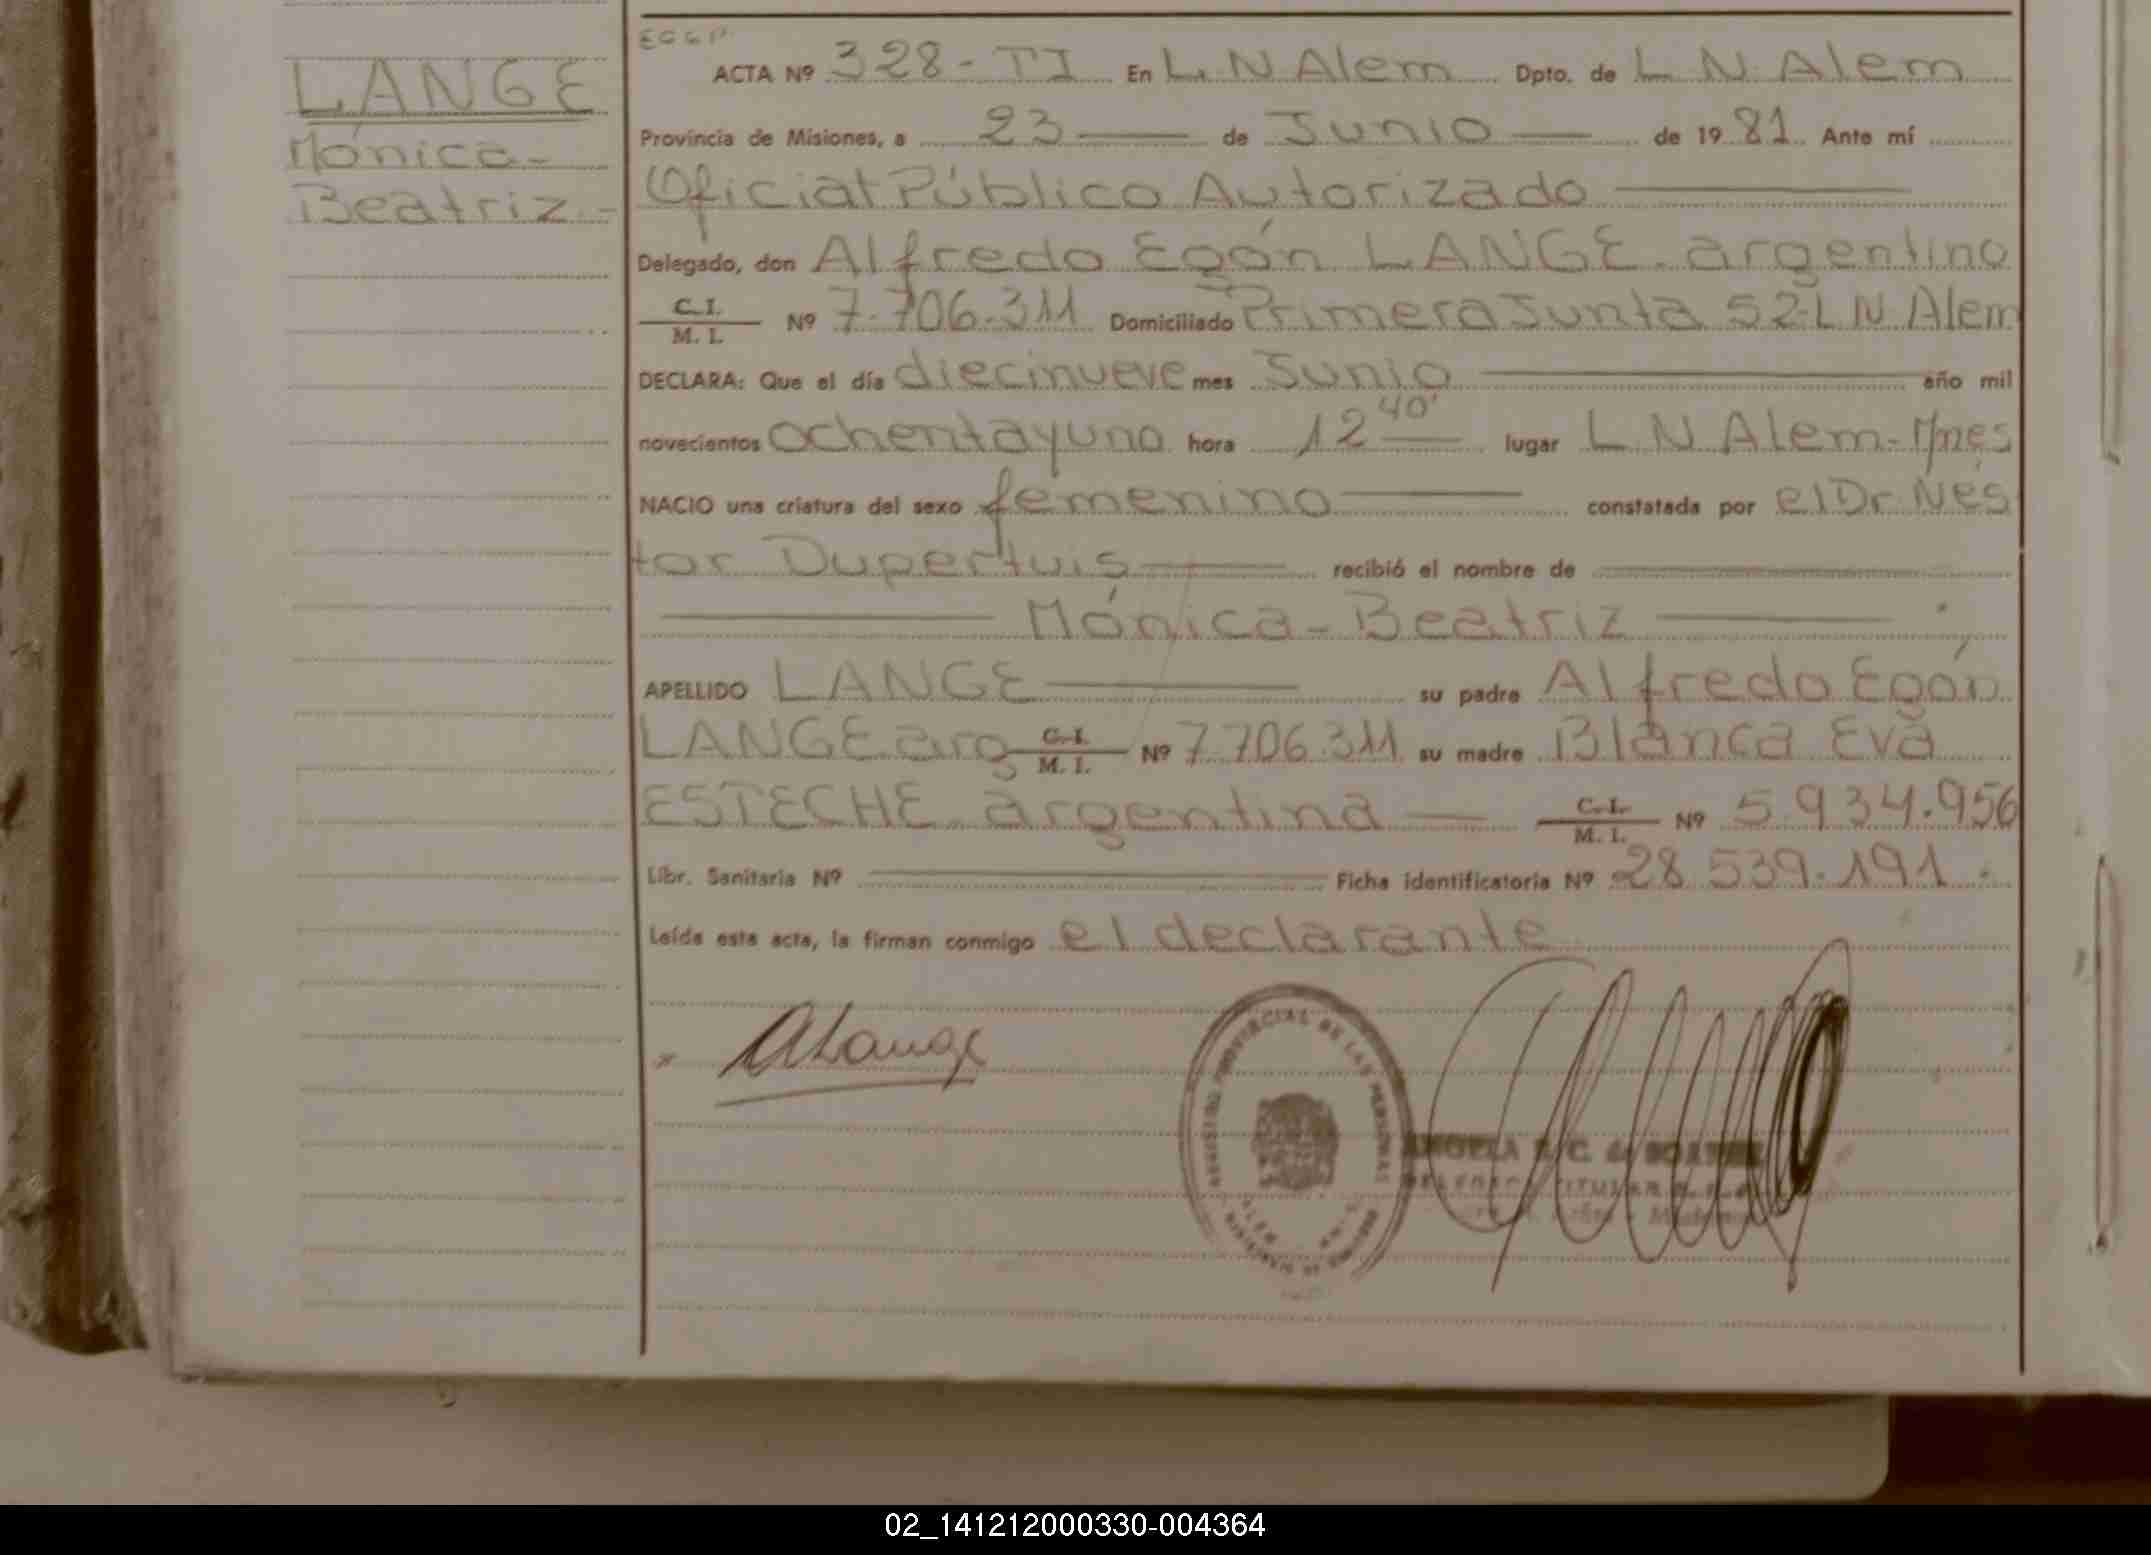 LANGE
Mónica-
Beatriz-
ACTA Nº 328-TI En L. N Alem Dpto. de L N Alem
Provincia de Misiones, a 23 de Junio de 1981 Ante mí
Oficial Público Autorizado
Delegado, don Alfredo Egón LANGE. argentino
C.I. M. I. Nº 7.706.311 Domiciliado Primera Junta 52-L N Alem
DECLARA: Que el día diecinueve mes Junio año mil
novecientos ochentayuno hora 12 40' lugar L N Alem-Mnes
NACIO una criatura del sexo femenino constatada por el Dr. Nés
tor Dupertuis recibió el nombre de
Mónica-Beatriz
APELLIDO LANGE su padre Alfredo Egón
LANGE arg C.I. M. I. Nº 7.706.311 su madre Blanca Eva
ESTECHE argentina C.I. M. I. Nº 5.934.956
Libr. Sanitaria Nº Ficha identificatoria Nº 28.539.191.
Leída esta acta, la firman conmigo el declarante
ALange
REGISTRO PROVINCIAL DE LAS PERSONAS
ANGELA C. de
02_141212000330-004364